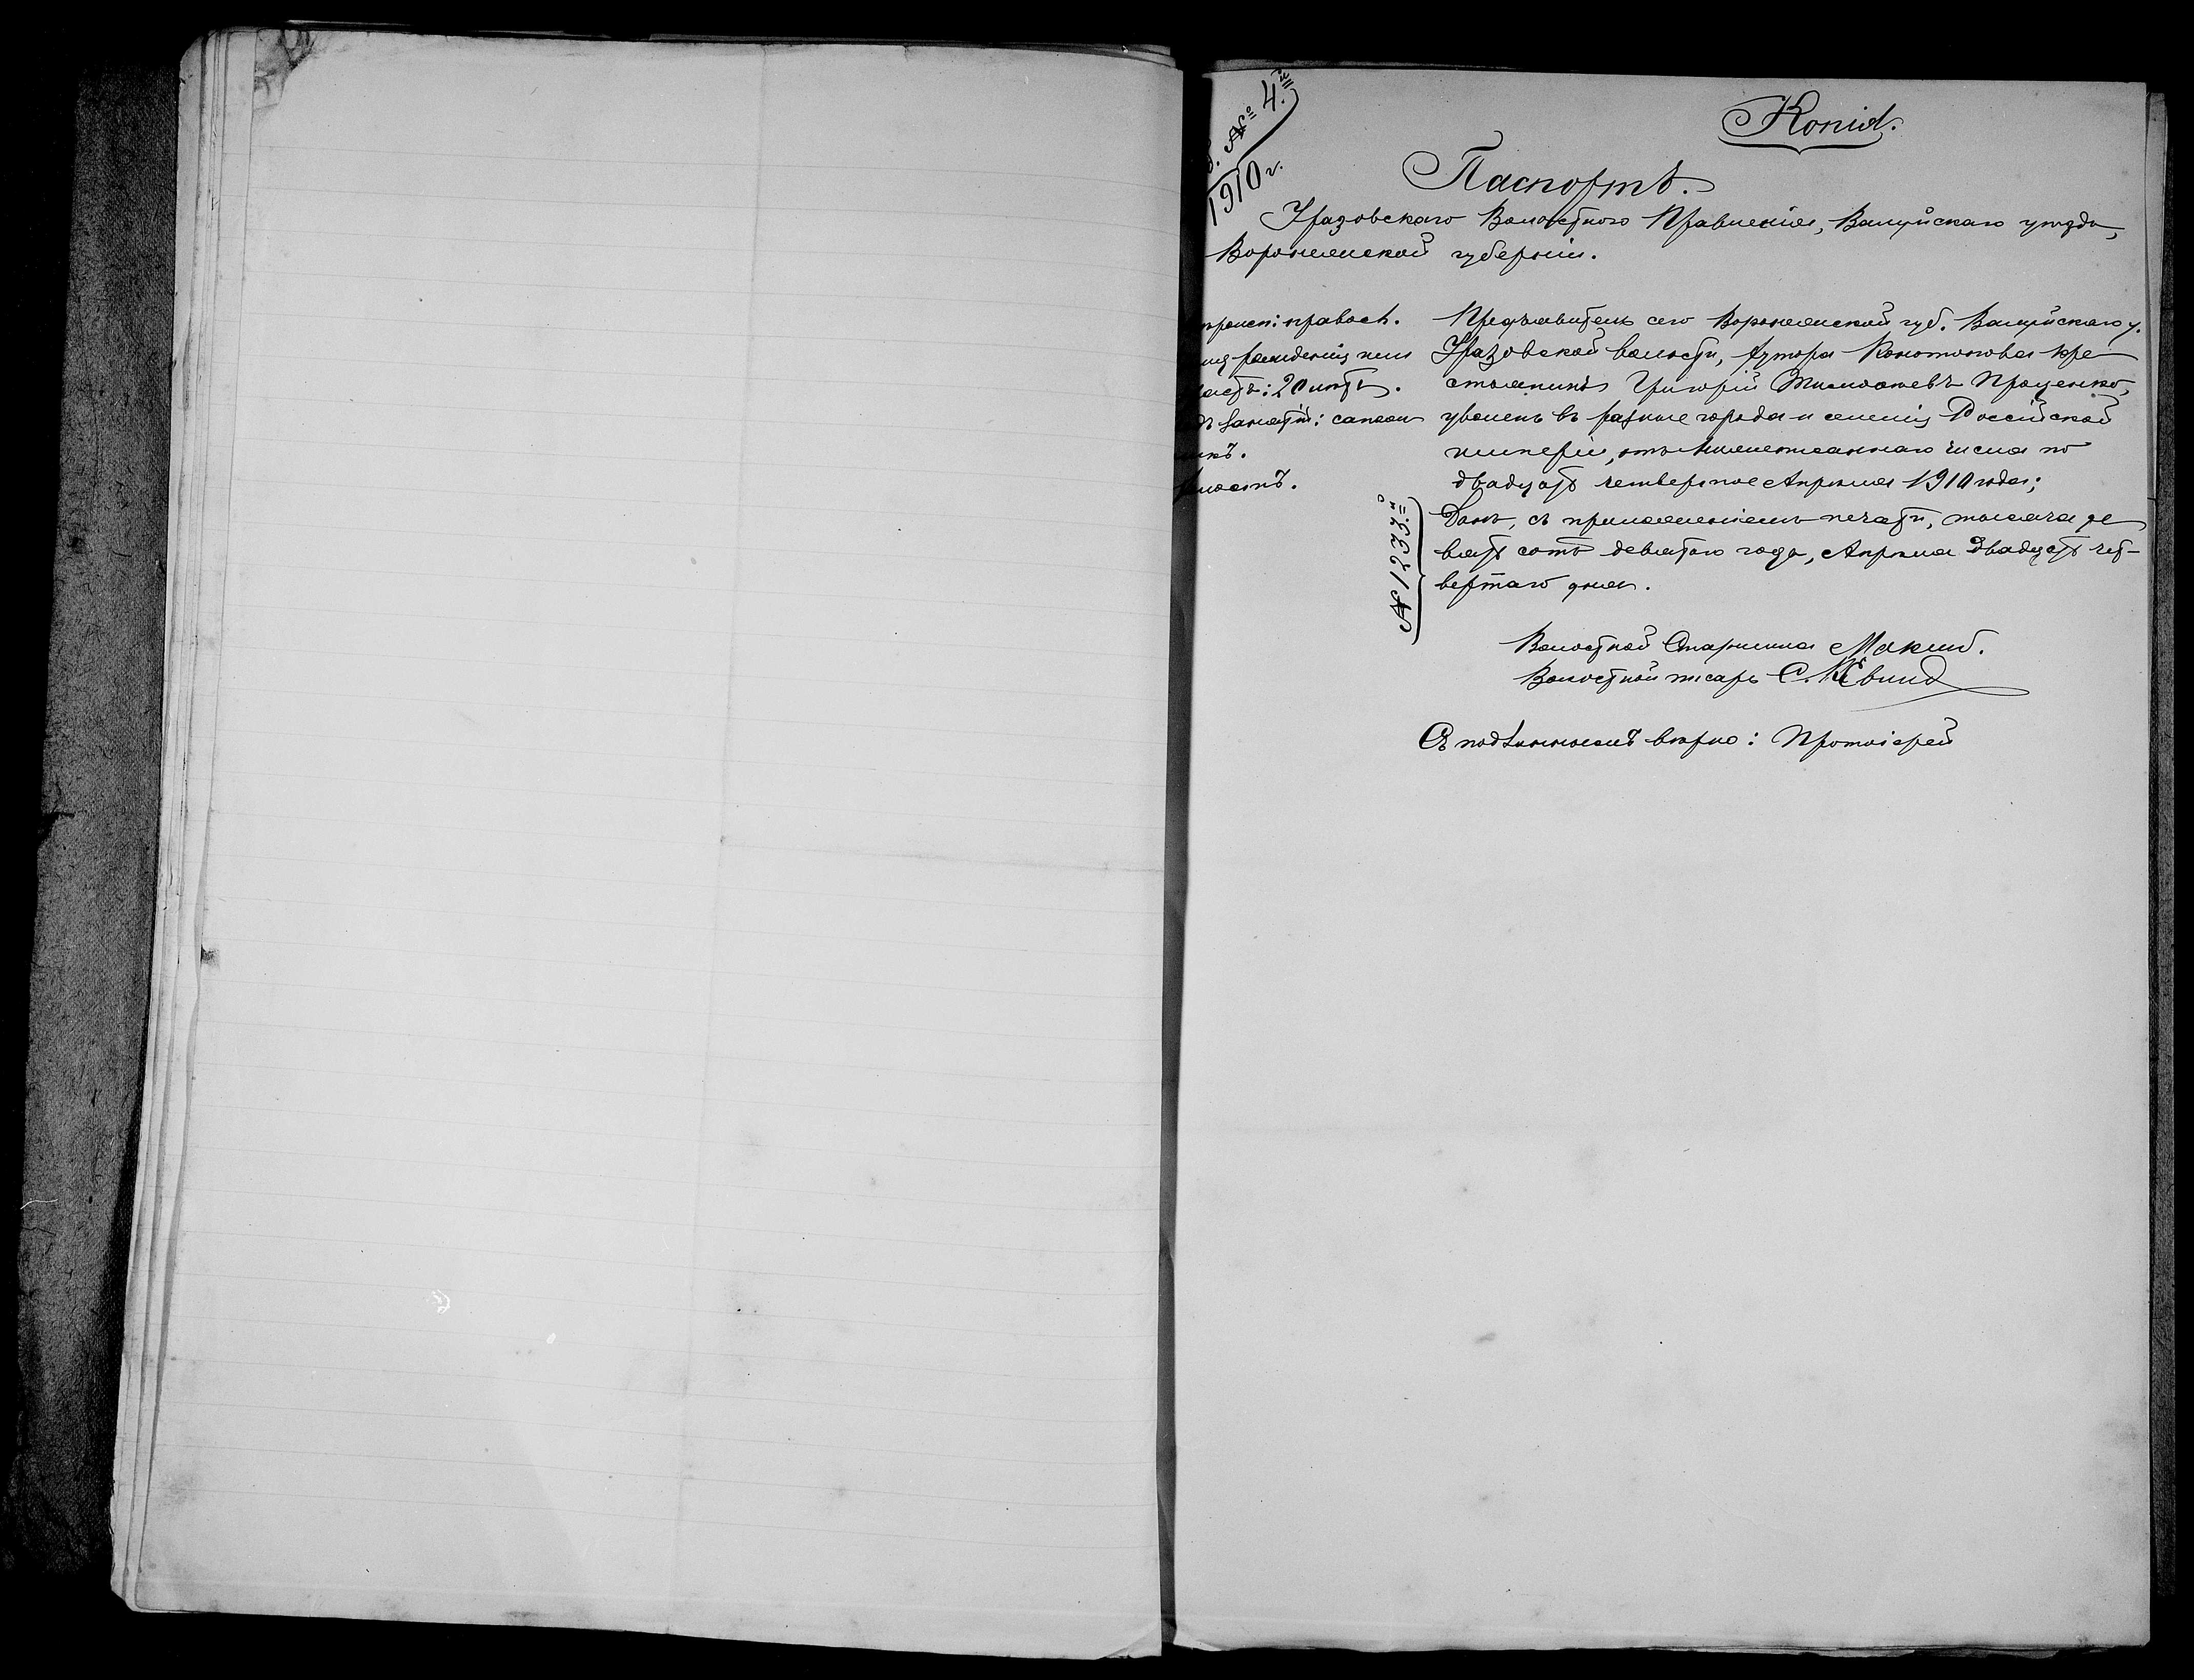 № 4.й
1910 г.
Копія.
Паспортъ.
Уразовскаго Волостного Правленія, Валуйскаго уѣзда,
Воронежской губерніи.
православ.
рожденія или
20 лѣтъ.
занятій: сапож
Предъявитель сего Воронежской губ. Валуйскаго у.
Уразовской волости, хутора Конотоповка кре
стьянинъ Григорій Проценко,
уволенъ въ разные города и селенія Россійской
имперіи, отъ нижеписаннаго числа по
двадцать четвертое Апрѣля 1910 года;
Данъ, съ приложеніемъ печати, тысяча де
вятъ сотъ девятаго года, Апрѣля двадцать чет-
вертаго дня.
Волостной Старшина
Волостной писарь С.
Съ подлиннымъ вѣрно: Протоіерей